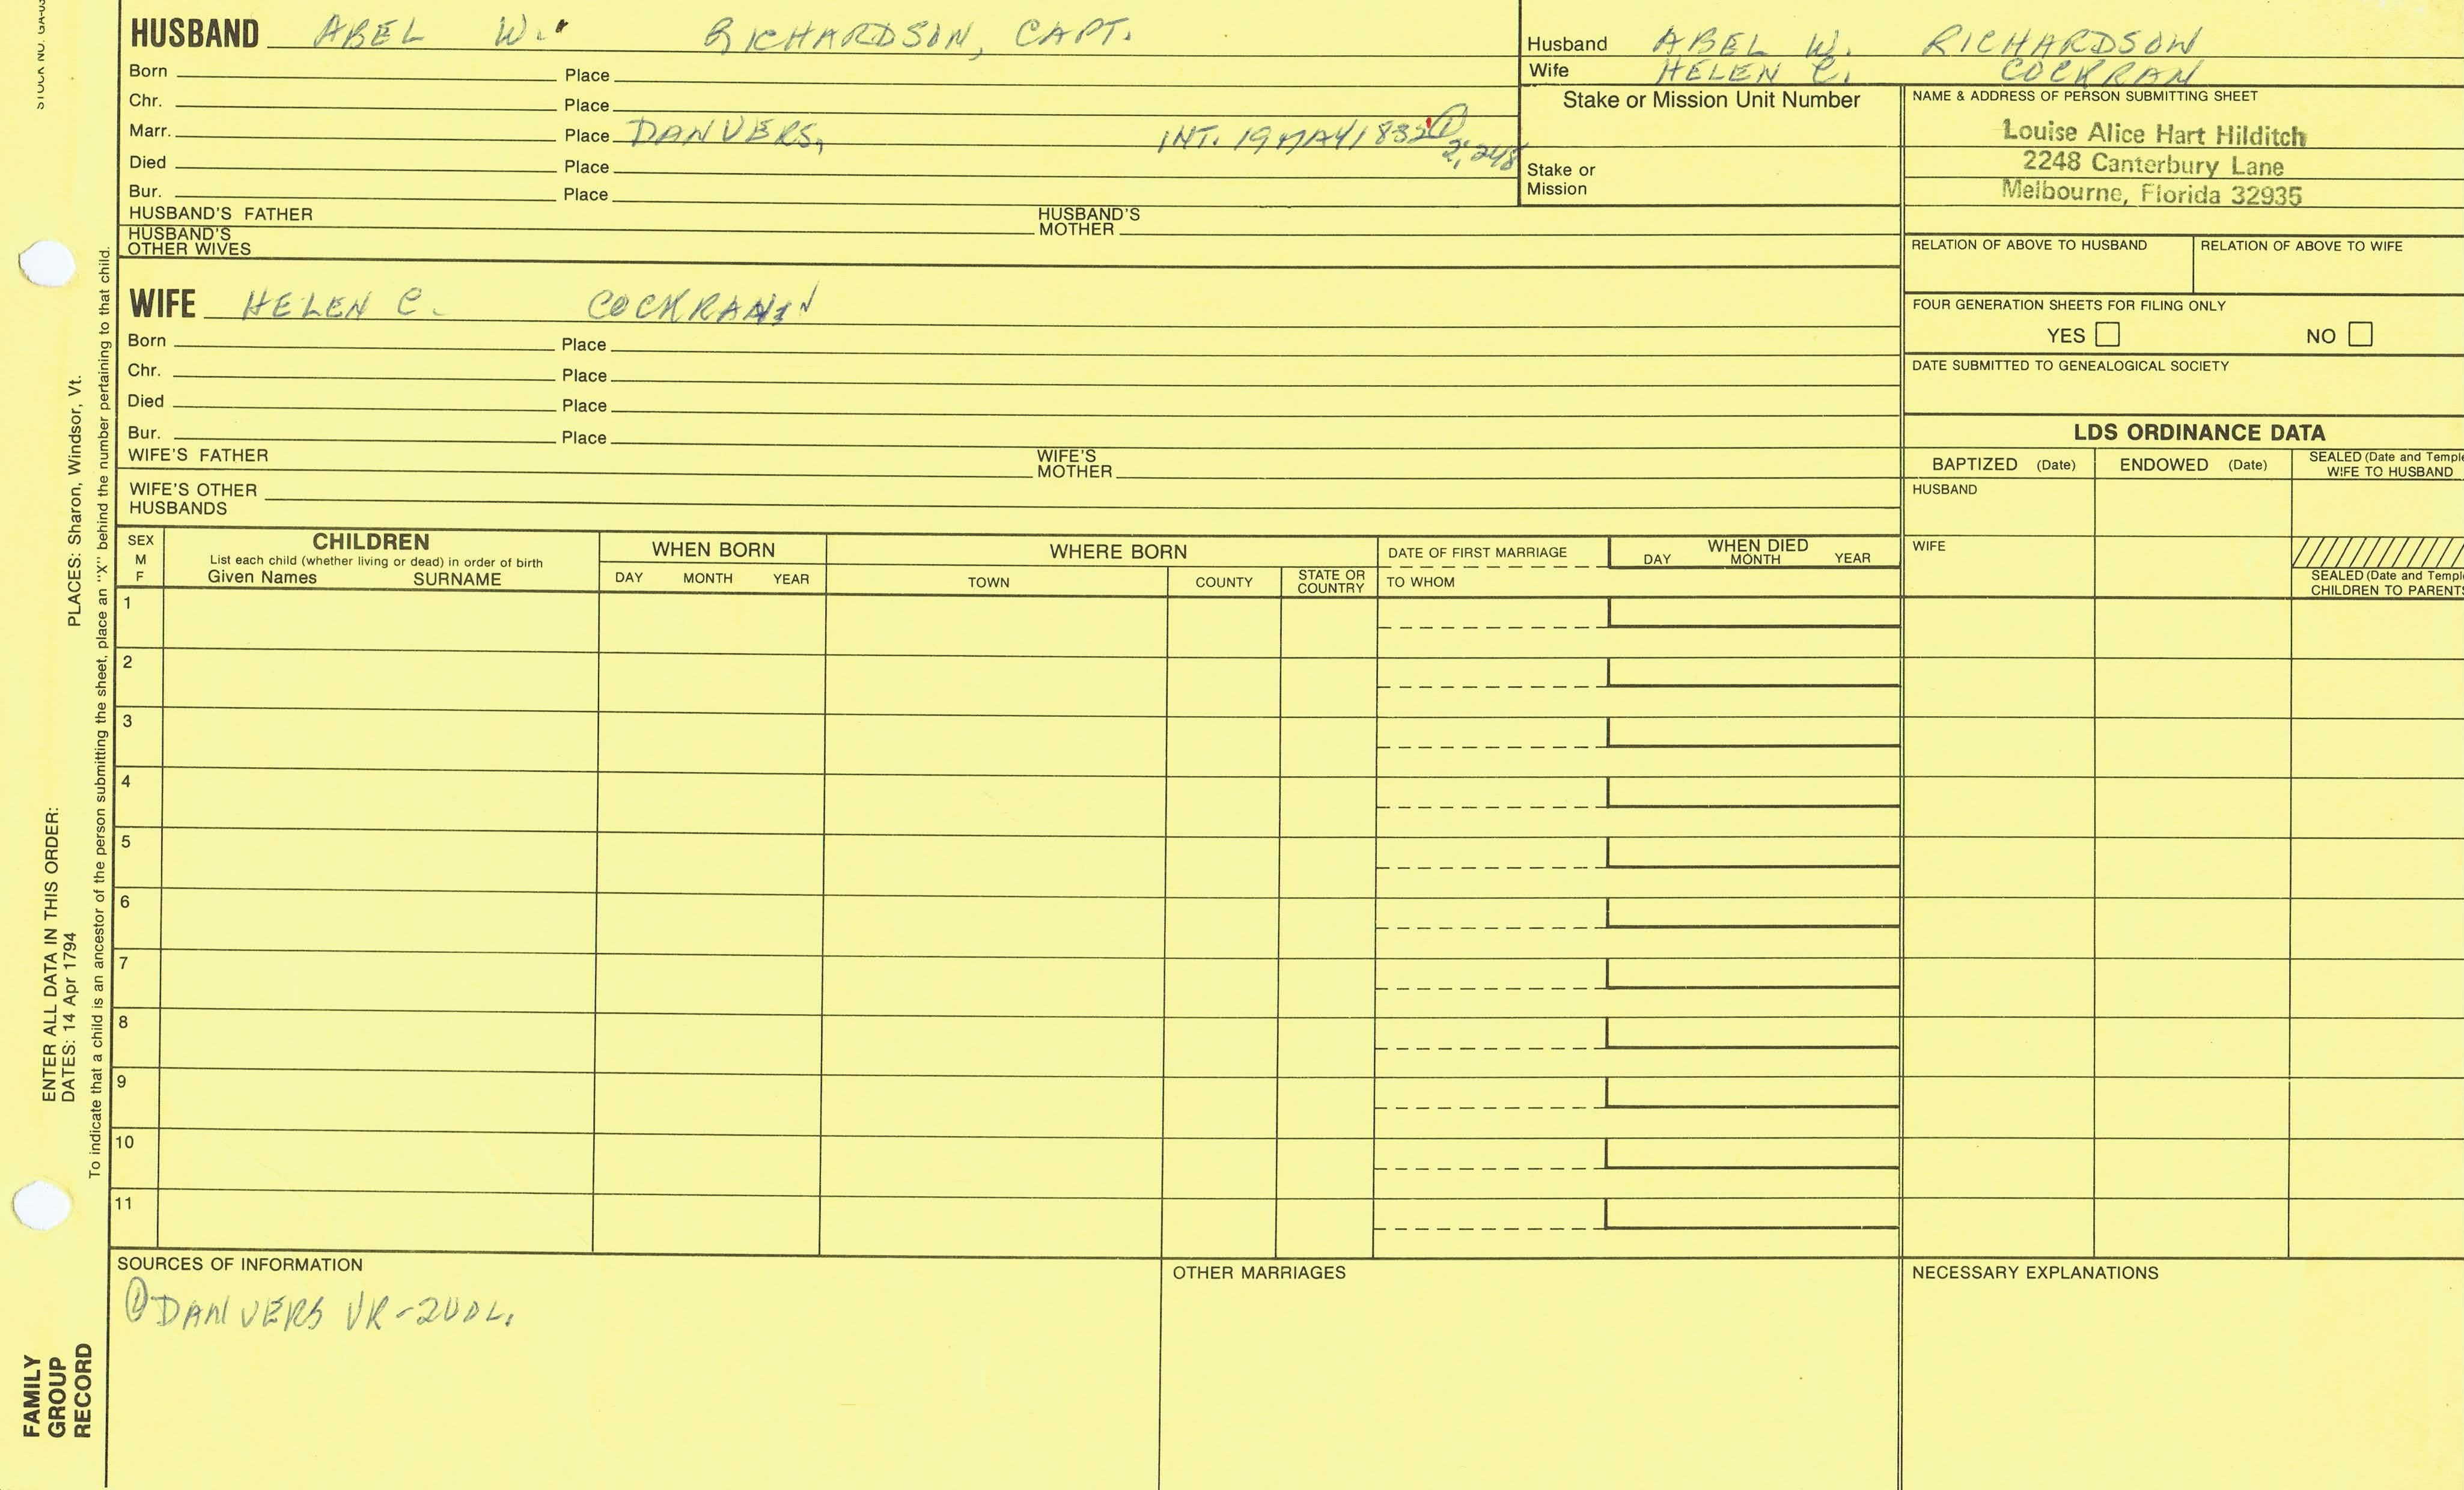 STOCK NO. GA-03
HUSBAND ABEL W. RICHARDSON, CAPT.
Born Place
Chr. Place
Marr. Place DANVERS, INT. 19 MAY 1832 ① 2; 248
Died Place
Bur. Place
HUSBAND'S FATHER HUSBAND'S MOTHER
HUSBAND'S OTHER WIVES
Husband ABEL W. RICHARDSON
Wife HELEN C. COCKRAN
Stake or Mission Unit Number
Stake or Mission
NAME & ADDRESS OF PERSON SUBMITTING SHEET
Louise Alice Hart Hilditch
2248 Canterbury Lane
Melbourne, Florida 32935
RELATION OF ABOVE TO HUSBAND RELATION OF ABOVE TO WIFE
FOUR GENERATION SHEETS FOR FILING ONLY
YES NO
DATE SUBMITTED TO GENEALOGICAL SOCIETY
WIFE HELEN C.
Born Place
Chr. Place
Died Place
Bur. Place
WIFE'S FATHER WIFE'S MOTHER
WIFE'S OTHER HUSBANDS
LDS ORDINANCE DATA
BAPTIZED (Date) ENDOWED (Date) SEALED (Date and Temple
WIFE TO HUSBAND
HUSBAND
WIFE
SEALED (Date and Temple
CHILDREN TO PARENTS
SEX
M
F
CHILDREN
List each child (whether living or dead) in order of birth
Given Names SURNAME
WHEN BORN
DAY MONTH YEAR
WHERE BORN
TOWN COUNTY STATE OR COUNTRY
DATE OF FIRST MARRIAGE
TO WHOM
WHEN DIED
DAY MONTH YEAR
1
2
3
4
5
6
7
8
9
10
11
SOURCES OF INFORMATION
① DANVERS VR-
OTHER MARRIAGES
NECESSARY EXPLANATIONS
ENTER ALL DATA IN THIS ORDER:
DATES: 14 Apr 1794 PLACES: Sharon, Windsor, Vt.
To indicate that a child is an ancestor of the person submitting the sheet, place an "X" behind the number pertaining to that child.
FAMILY
GROUP
RECORD